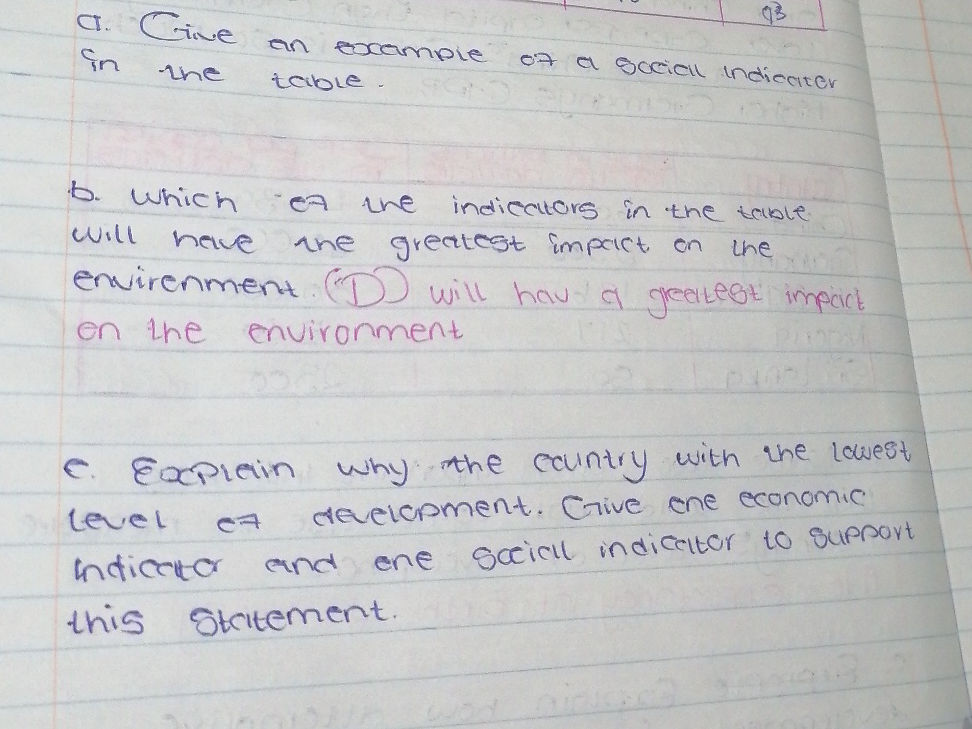 93
a. Give an example of a social indicator
in the table.
b. Which of the indicators in the table
will have the greatest impact on the
environment. (D) will hav a greatest impact
on the environment
c. Explain why the country with the lowest
level of development. Give one economic
indicator and one social indicator to support
this statement.